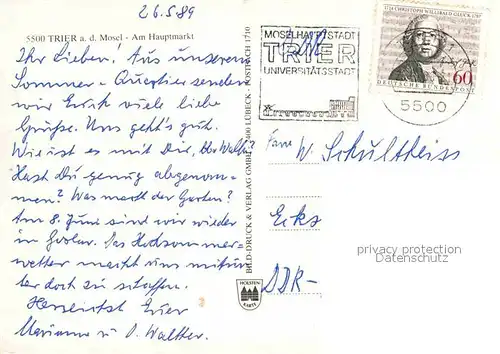 26.5.89
5500 TRIER a. d. Mosel - Am Hauptmarkt
Ihr Lieben! Aus unserem
Sommer-Quartier senden
wir Euch viele liebe
Grüße. Uns geht's gut.
Wie ist es mit Dir,
Hast du genug abgenom-
men? Was macht der Garten?
Am 8. Juni sind wir wieder
in Goslar. Das Hochsommer-
wetter macht uns mitun-
ter doch zu schaffen.
Herzlichst Euer
Marianne u. O. Walther.
BILD-DRUCK & VERLAG GMBH 2400 LÜBECK · POSTFACH 1710
HOLSTEN
KARTE
MOSELHAUPTSTADT
TRIER
UNIVERSITÄTSSTADT
1714 CHRISTOPH WILLIBALD GLUCK 1787
60
DEUTSCHE BUNDESPOST
5500
W. Schultheiss
DDR-
privacy protection
Datenschutz